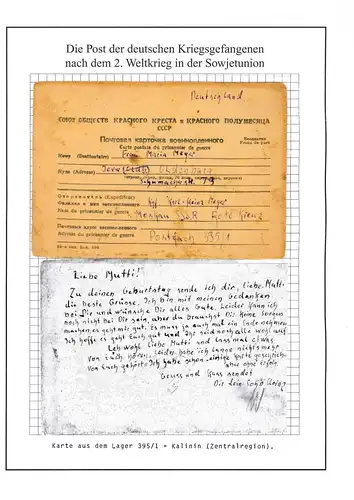 Die Post der deutschen Kriegsgefangenen
nach dem 2. Weltkrieg in der Sowjetunion
Deutschland
СОЮЗ ОБЩЕСТВ КРАСНОГО КРЕСТА и КРАСНОГО ПОЛУМЕСЯЦА
СССР
Почтовая карточка военнопленного
Carte postale du prisonnier de guerre
Кому (Destinataire) Frau Maria Meyer
Куда (Adresse) Oldenburg
79
Отправитель (Expéditeur)
Фамилия и имя военнопленного
Nom du prisonnier de guerre Moskau Rote Kreuz
Почтовый адрес военнопленного
Adresse du prisonnier de guerre Postfach 395/1
Liebe Mutti!
Zu deinem Geburtstag sende ich dir, liebe Mutti
die beste Grüsse. Ich bin mit meinen Gedanken
bei Dir und wünsche Dir alles Gute. Leider kann ich
noch nicht bei Dir sein, aber du brauchst Dir keine Sorgen
machen, es geht mir gut. Es muss ja auch mal ein Ende nehmen
Ich hoffe es geht Euch gut. Ihr seid noch alle wohl auf
Leb wohl liebe Mutti und lass mal etwas
von Euch hören, leider habe ich lange nichts mehr
von Euch gehört. Ich habe schon einige Karten geschrieben
aber ohne Erfolg.
Gruss und Kuss sendet
Dir Dein Sohn
Karte aus dem Lager 395/1 = Kalinin (Zentralregion).